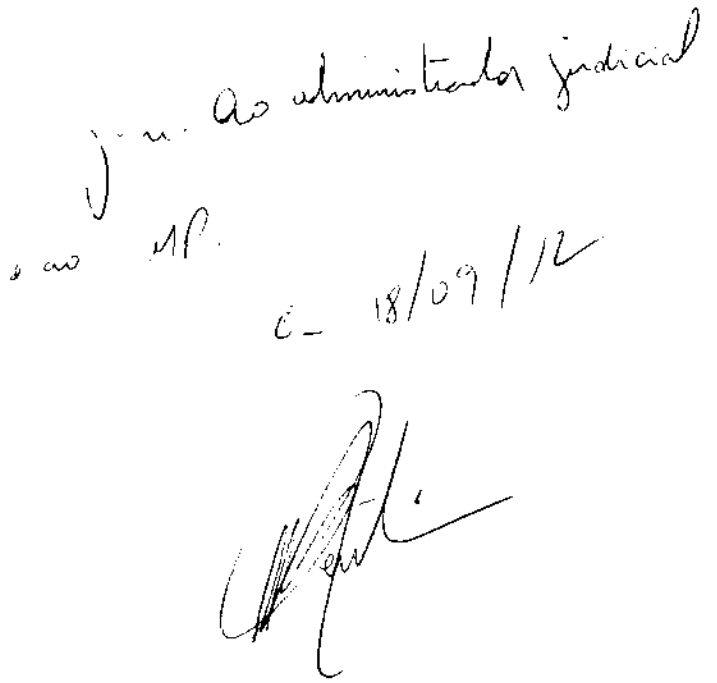 j. n. Ao administrador judicial
e ao MP.
E- 18/09/12